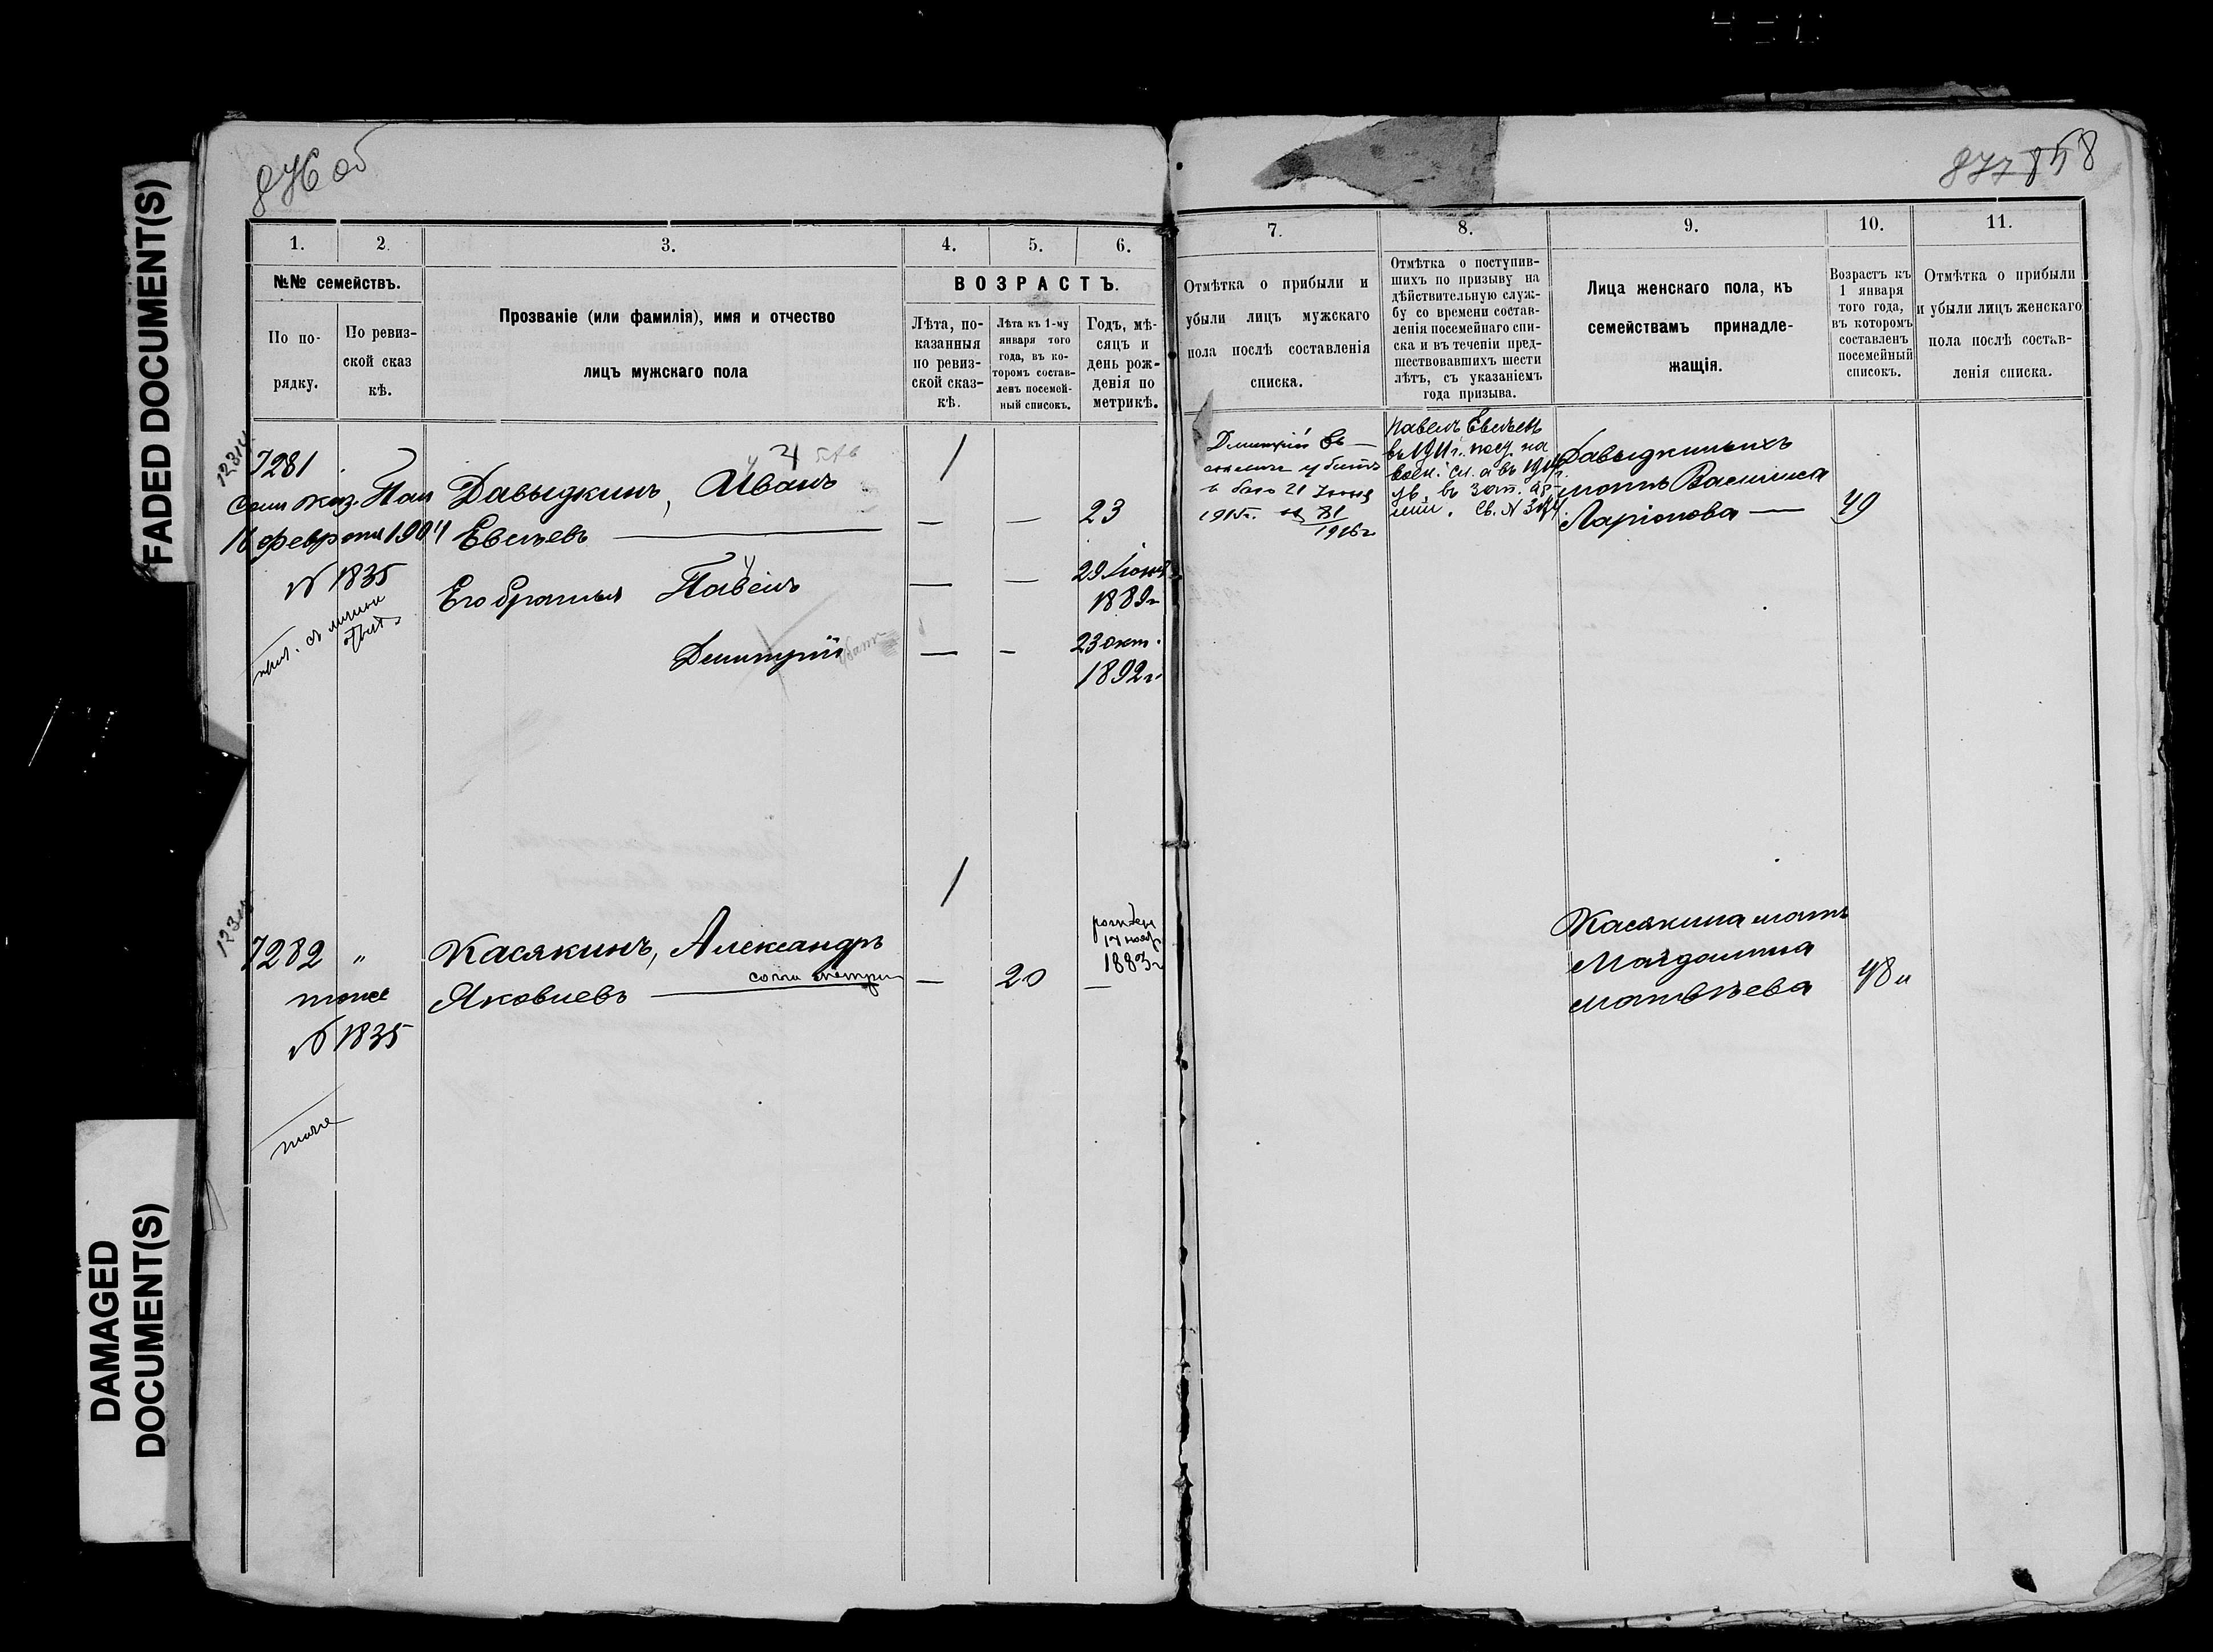 FADED DOCUMENT(S)
DAMAGED
DOCUMENT(S)
876 об
877 858
1.
2.
3.
4.
5.
6.
№№ семействъ.
По по-
рядку.
По ревиз-
ской сказ
кѣ.
Прозваніе (или фамилія), имя и отчество
лицъ мужскаго пола
ВОЗРАСТЪ.
Лѣта, по-
казанныя
по ревиз-
ской сказ-
кѣ.
Лѣта къ 1-му
января того
года, въ ко-
торомъ состав-
ленъ посемей-
ный списокъ.
Годъ, мѣ-
сяцъ и
день рож-
денія по
метрикѣ.
7281
Давыдкинъ, Иванъ
16 февраля 1904
Евсѣевъ
23
№ 1835
Его братья Павелъ
29 Іюня
1889 г
Дмитрій
23 окт.
1892 г.
7282 „
Касякинъ, Александръ
рожден
17 нояб
1883 г
тоже
Яковлевъ
20
№ 1835
тоже
7.
8.
9.
10.
11.
Отмѣтка о прибыли и
убыли лицъ мужскаго
пола послѣ составленія
списка.
Отмѣтка о поступив-
шихъ по призыву на
дѣйствительную служ-
бу со времени состав-
ленія посемейнаго спи-
ска и въ теченіи пред-
шествовавшихъ шести
лѣтъ, съ указаніемъ
года призыва.
Лица женскаго пола, къ
семействамъ принадле-
жащія.
Возрастъ къ
1 января
того года,
въ которомъ
составленъ
посемейный
списокъ.
Отмѣтка о прибыли
и убыли лицъ женскаго
пола послѣ состав-
ленія списка.
Дмитрій Ев-
убитъ
в бою 21 Іюня
1915 г.
1916 г
Павелъ Евсѣевъ
въ 1911 г. пост на
воен. сл. а въ 1914 г
ув. въ зап. ар-
міи. Св. №
Давыдкиныхъ
мать Василиса
Ларіонова — 49
Касякина мать
Магдалина
Матвѣева 48